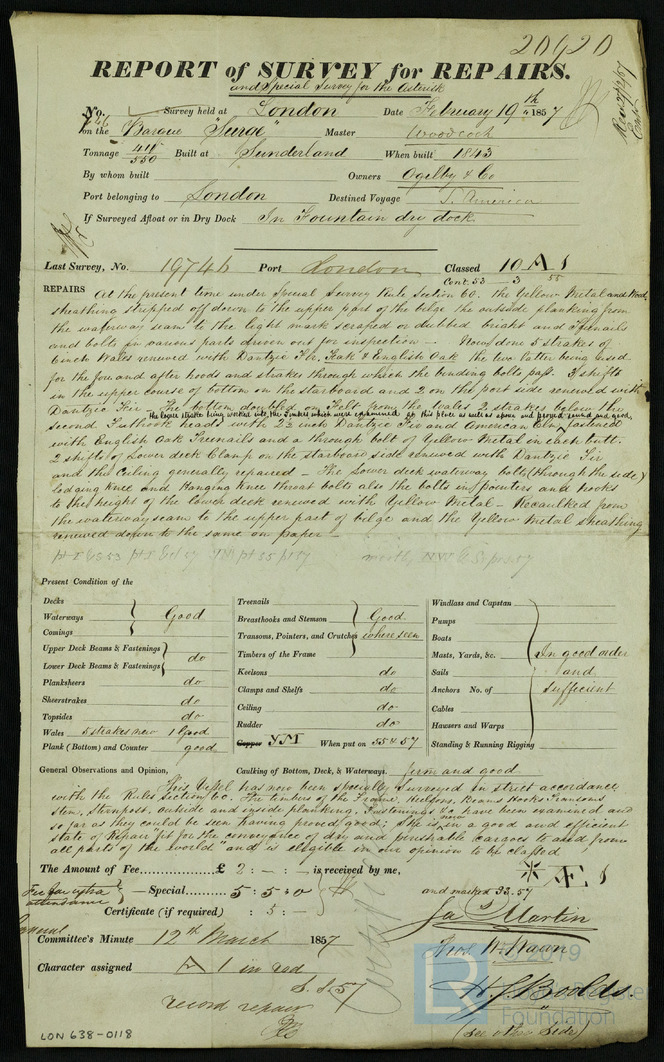 20620
REPORT of SURVEY for REPAIRS.
and Special Survey for the Asterisk
No. Survey held at London Date February 19th 1857
on the Barque "Surge" Master Woodcock
Tonnage 411/550 Built at Sunderland When built 1843
By whom built Owners Ogelby & Co
Port belonging to London Destined Voyage S. America
If Surveyed Afloat or in Dry Dock In Fountain dry dock.
Last Survey, No. 19746 Port London Classed 10 A 1
Cont. 53 - 3 55
REPAIRS At the present time under Special Survey Rule Section 60. the Yellow Metal and Wood
sheathing stripped off down to the upper part of the bilge the outside planking from
the waterway seam to the light mark scraped or dubbed bright and Treenails
and bolts in various parts driven out for inspection - Now done 5 strakes of
6 inch Wales renewed with Dantzic Fir, Teak & English Oak the two latter being used
for the fore and after hoods and strakes through which the binding bolts pass. 3 shifts
in the upper course of bottom on the starboard and 2 on the port side renewed with
Dantzic Fir. The bottom doubled on Felt from the wales 2 strakes below the
the lower strake being worked into the Timbers
second Futtock heads with 2½ inch Dantzic Fir and American Elm fastened
with English Oak Treenails and a through bolt of Yellow Metal in each butt.
2 shifts of Lower deck Clamp on the starboard side renewed with Dantzic Fir
and the Ceiling generally repaired - The Lower deck waterway bolts (through the side)
lodging knee and Hanging knee throat bolts also the bolts in pointers and hooks
to the height of the lower deck renewed with Yellow Metal - Recaulked from
the waterway seam to the upper part of bilge and the Yellow Metal sheathing
renewed down to the same on paper -
Present Condition of the
Decks
Waterways Good
Comings
Upper Deck Beams & Fastenings
Lower Deck Beams & Fastenings do
Planksheers do
Sheerstrakes do
Topsides do
Wales 5 strakes new 1 Good
Plank (Bottom) and Counter good
Treenails
Breasthooks and Stemson Good
Transoms, Pointers, and Crutches where seen
Timbers of the Frame
Keelsons do
Clamps and Shelfs do
Ceiling do
Rudder do
Copper YM When put on 55 & 57
Windlass and Capstan
Pumps
Boats
Masts, Yards, &c. In good order
Sails and
Anchors No. of Sufficient
Cables
Hawsers and Warps
Standing & Running Rigging
General Observations and Opinion, Caulking of Bottom, Deck, & Waterways. firm and good
This Vessel has now been specially surveyed in strict accordance
with the Rules Section 60. The timbers of the Frame, Keelsons, Beams Hooks Transoms
Stem, Sternpost, outside and inside planking, Fastenings &c have been examined and
so far as they could be seen having proved good; She is now in a good and efficient
state of Repair "fit for the conveyance of dry and perishable cargoes to and from
all parts of the world" and is eligible in our opinion to be classed
The Amount of Fee......£ 2 : - : - is received by me, * Æ 1
Fee for extra
attendance
Special...... 5 : 5 : 0 and marked 33.57
Certificate (if required) : 5 : - Jas Martin
Committee's Minute 12th March 1857 Thos. W. Wawn
Character assigned A 1 in red H. J. Boolds.
S.S. 57
record repairs
(See other Side)
© 2019
Foundation
LON 638-0118